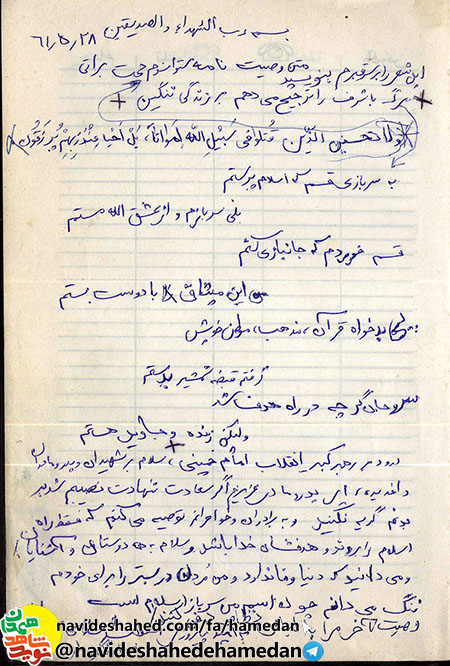 بسم رب الشهداء والصدیقین ۶۱/۵/۲۸
این شعر را بر سر قبرم بنویسید متن وصیت نامه
مرگ با شرف را ترجیح می دهم بر زندگی ننگین
ولا تحسبن الذین قتلوا فی سبیل الله امواتا، بل احیاء عند ربهم یرزقون
به سربازی قسم که اسلام پرستم
بلی سربازم و از عشق الله مستم
قسم خوردم که جانبازی کنم
من این میثاق را با دوست بستم
بدخواه قرآن، مذهب، میهن خویش
گرفتم قبضه شمشیر بدستم
سر و جان گر چه در راه هدف شد
ولیکن زنده و جاوید هستم
درود بر رهبر کبیر انقلاب امام خمینی، سلام بر شهیدان و پدر و مادران
داغدیده، ای پدر و مادر عزیزم اگر سعادت شهادت نصیبم شد بر
برایم گریه نکنید و به برادران و خواهرانم توصیه می کنم که فقط راه
اسلام را بروند و هدفشان خدا باشد و سلام به همه دوستان و آشنایان
و می دانید که دنیا وفا ندارد و من مردن در بستر را برای خودم
ننگ می دانم چو که اسم من سرباز اسلام است
وصیت آخر مرا به
navideshahed.com/fa/hamedan
@navideshahedehamedan
نوید شاهد
همدان